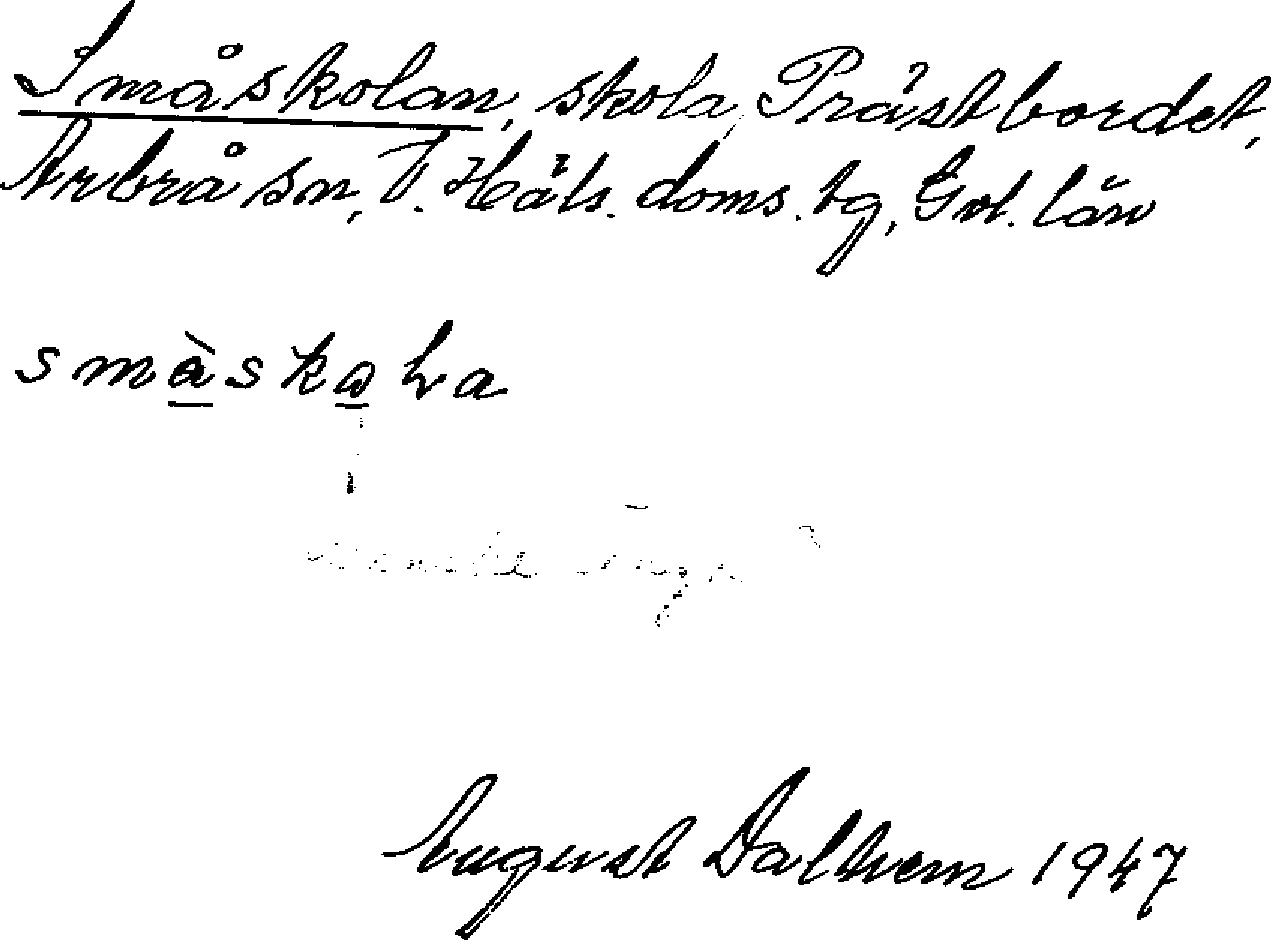 Småskolan, skola, Prästbordet,
Arbrå sn, V. Häls. doms. tg, Gvl. län
småskoLa
August Dalhem 1947